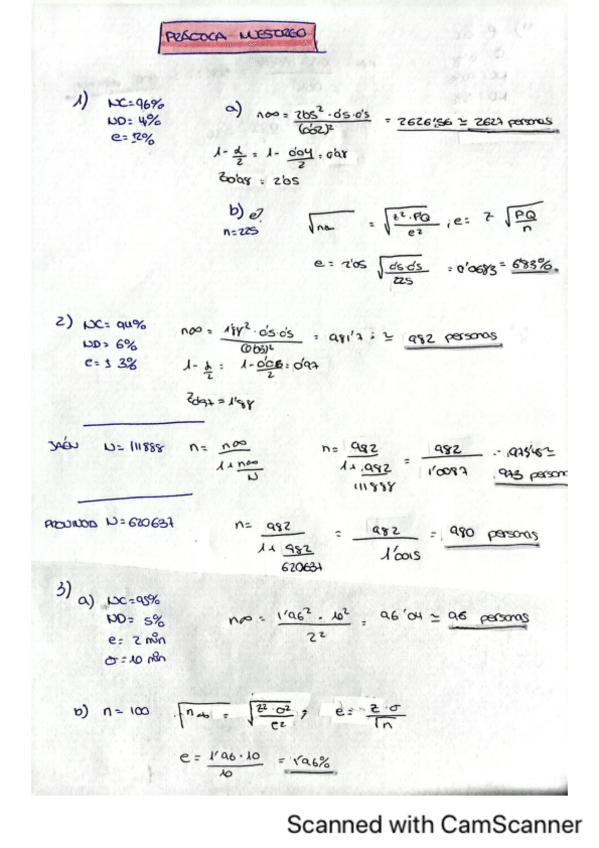 PRÁCTICA MUESTREO
1) NC=96%
ND=4%
e=±2%
a) n∞ = 2'05² · 0'5 · 0'5 / (0'02)² = 2626'56 ≅ 2627 personas
1 - α/2 = 1 - 0'04/2 = 0'98
Z0'98 = 2'05
b) e?
n=225
√n∞ = √(Z² · PQ / e²) ; e = Z √(PQ / n)
e = 2'05 √(0'5 · 0'5 / 225) = 0'0683 = 6'83%.
2) NC=94%
ND=6%
e=± 3%
n∞ = 1'88² · 0'5 · 0'5 / (0'03)² = 981'7 ; ≅ 982 personas
1 - α/2 = 1 - 0'06/2 = 0'97
Z0'97 = 1'88
JAÉN N=111888 n= n∞ / (1 + n∞/N) n= 982 / (1 + 982/111888) = 982 / 1'0087 = 973'48 ≅ 973 person
PROVINCIA N=620637 n= 982 / (1 + 982/620637) = 982 / 1'0015 = 980 personas
3) a) NC=95%
ND=5%
e= 2 min
σ=10 min
n∞ = 1'96² · 10² / 2² = 96'04 ≅ 96 personas
b) n=100 √n∞ = √(Z² · σ² / e²) ; e= Z · σ / √n
e = 1'96 · 10 / 10 = 1'96%
Scanned with CamScanner